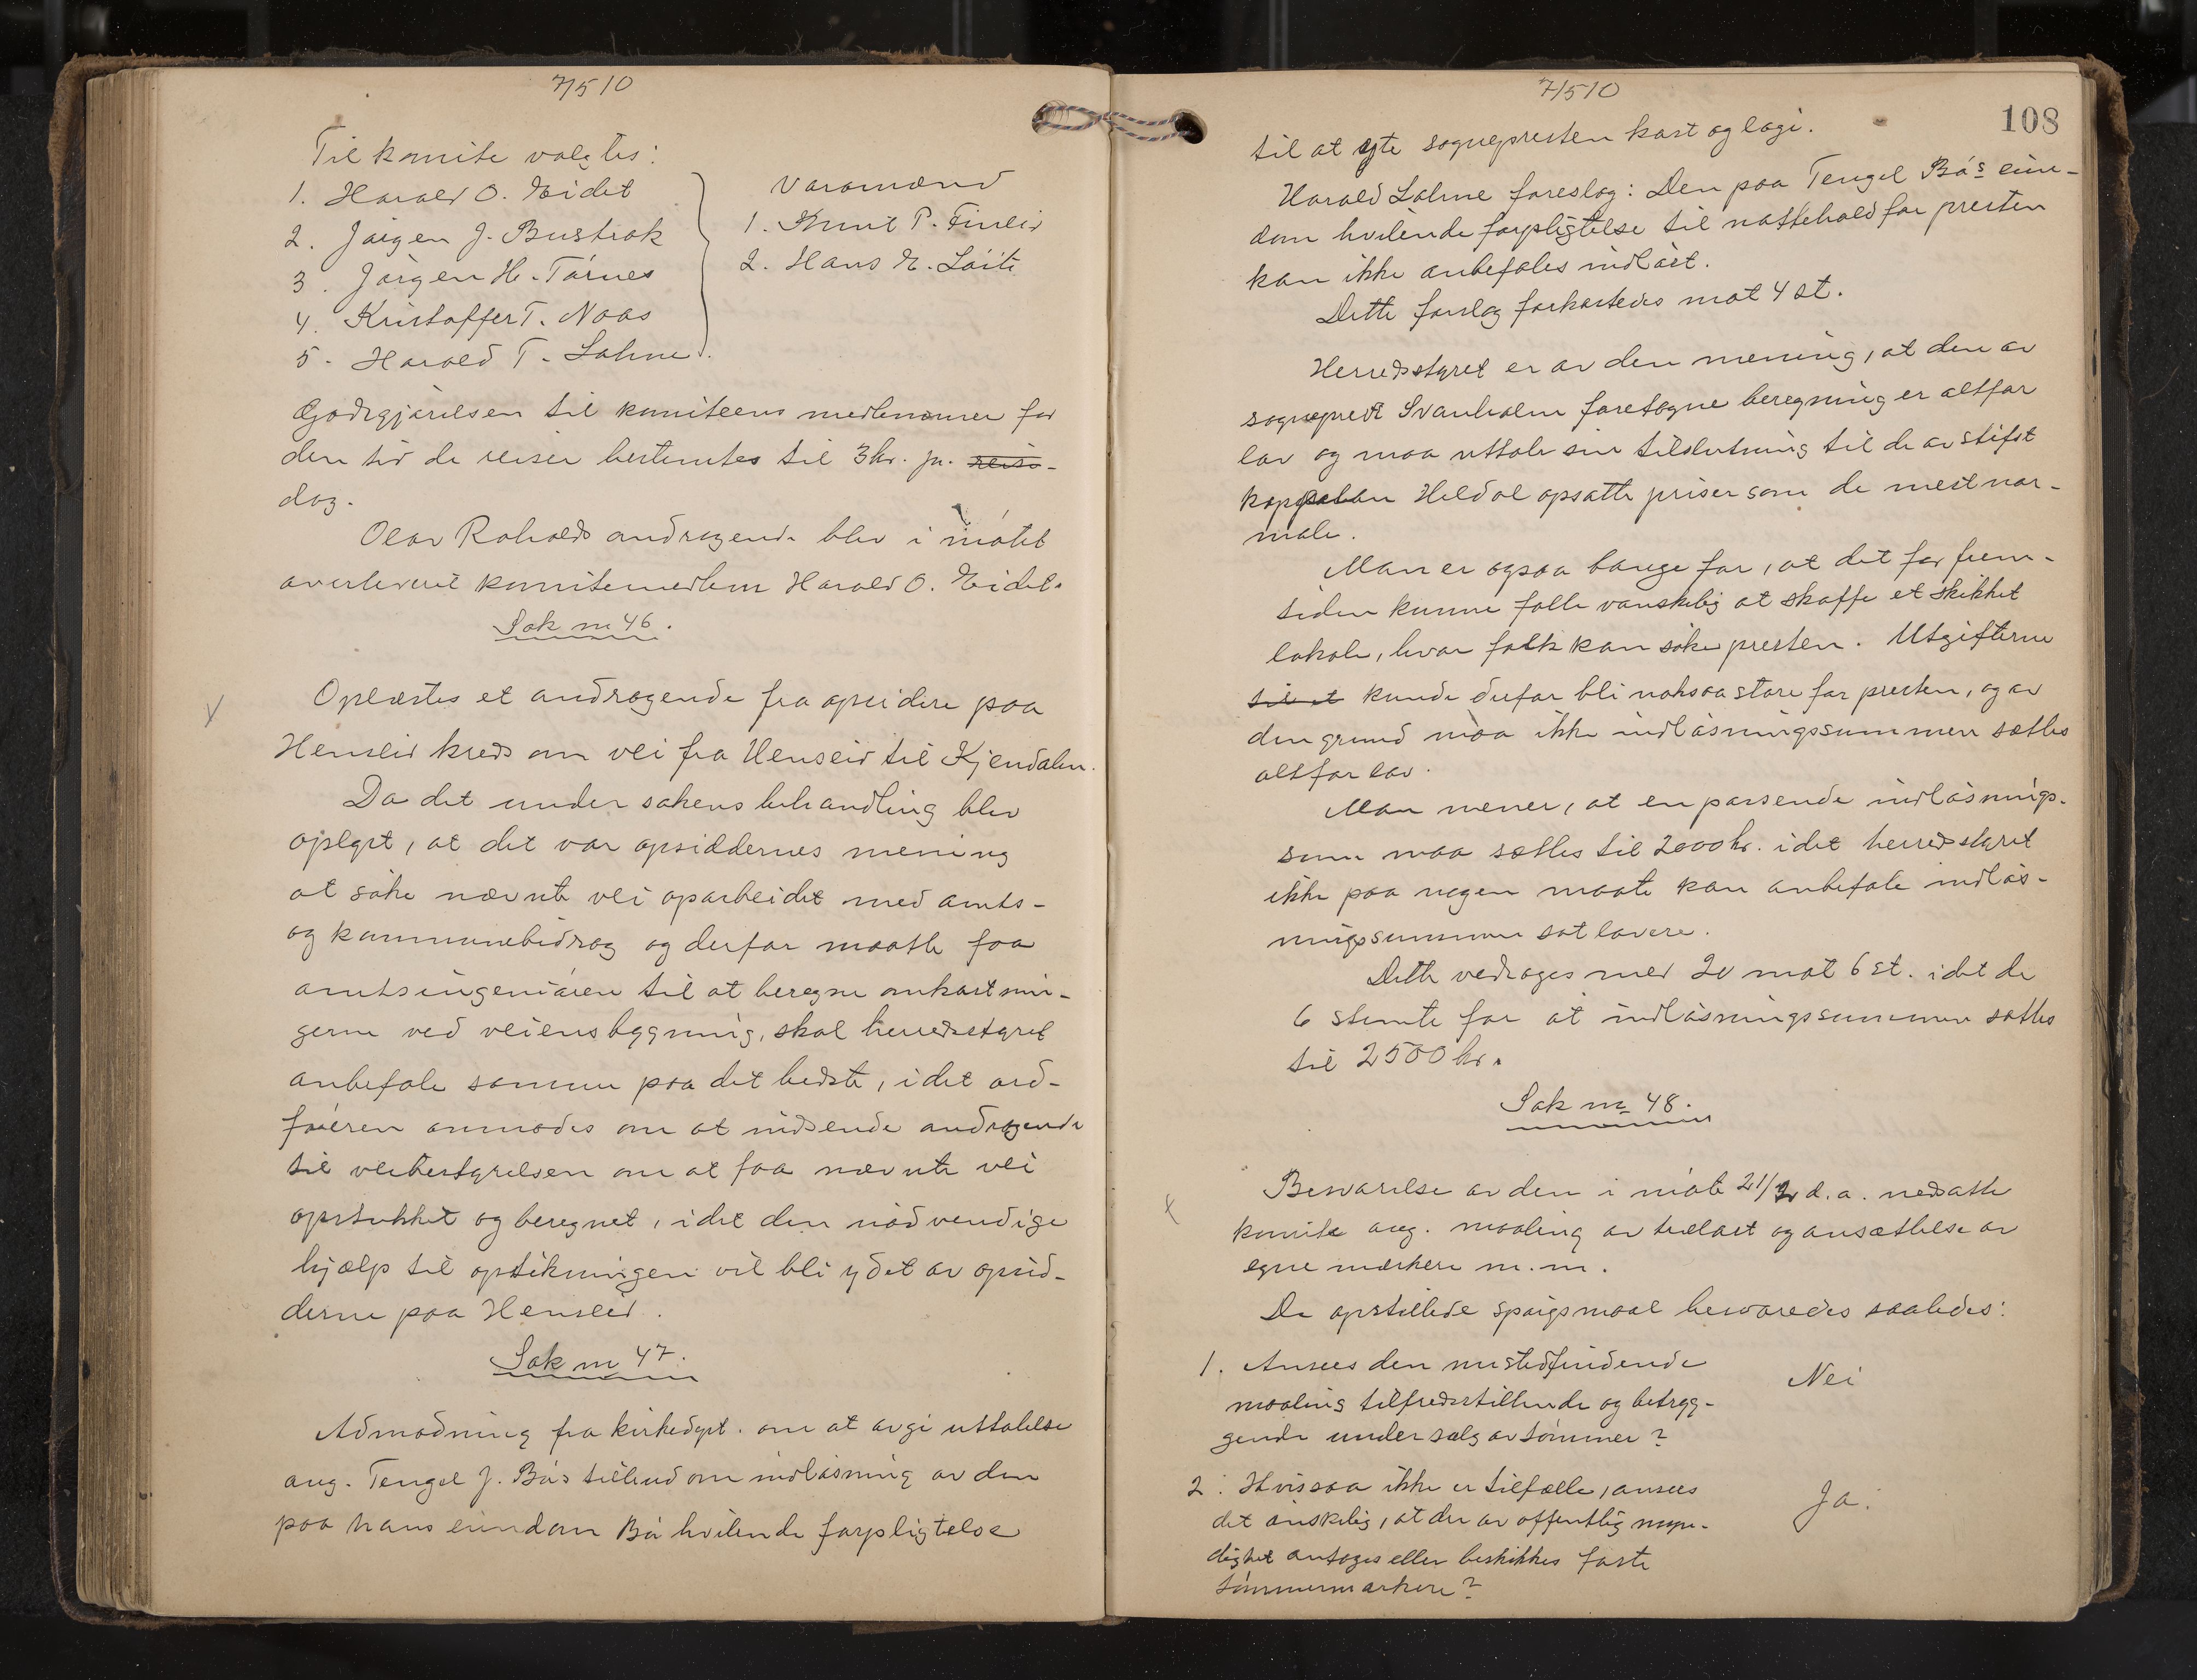 7/5 10
Til komite valgtes:
1. Harald O. Eidet
2. Jørgen J. Bustrak
3. Jørgen H. Tørnes
4. Kristoffer T. Naas
5. Harald T. Lahme.
Varamænd
1. Knut P. Finlid
2. Hans E. Løite
Godtgjørelsen til komiteens medlemmer for
den tid de reiser bestemtes til 3 kr. pr. reise-
dag.
Olav Roholds andragende blev i møtet
overleveret komitemedlem Harald O. Eidet.
Sak nr 46.
Oplæstes et andragende fra opsidere paa
Henseid kreds om vei fra Henseid til Kjendalen.
Da det under sakens behandling blev
oplyst, at det var opsiddernes mening
at søke nævnte vei oparbeidet med amts-
og kommunebidrag og derfor maatte faa
amtsingeniøren til at beregne omkostnin-
gerne ved veiens bygning, skal herredsstyret
anbefale samme paa det bedste, idet ord-
føreren anmodes om at indsende andragende
til veibestyrelsen om at faa nævnte vei
opstukket og beregnet, idet den nødvendige
hjælp til opstikningen vil bli ydet av opsid-
derne paa Henseid.
Sak nr 47.
Admodning fra kirkedept. om at avgi uttalelse
ang. Tengel J. Bøs tilbud om indløsning av den
paa hans eiendom Bø hvilende forpligtelse
7/5 10
108
til at yte sognepresten kost og logi.
Harald Lahme foreslog: Den paa Tengel Bøs eien-
dom hvilende forpligtelse til nattehold for presten
kan ikke anbefales indløst.
Dette forslag forkastedes mot 4 st.
Herredsstyret er av den mening, at den av
sogneprest Svanholm foretagne beregning er altfor
lav og maa uttale sin tilslutning til de av stifts
kappelan Heldal opsatte priser som de mest nor-
male.
Man er ogsaa bange for, at det for frem-
tiden kunne falle vanskelig at skaffe et skikket
lokale, hvor folk kan søke presten. Utgifterne
til et kunde derfor bli noksaa store for presten, og av
den grund maa ikke indløsningssummen sættes
altfor lav.
Man mener, at en passende indløsnings-
sum maa sættes til 2000 kr. idet herredsstyret
ikke paa nogen maate kan anbefale indløs-
ningssummen sat lavere.
Dette vedtoges med 20 mot 6 st. idet de
6 stemte for at indløsningssummen sattes
til 2500 kr.
Sak nr 48.
Besvarelse av den i møte 21/2 d.a. nedsatte
komite ang. maaling av trælast og ansættelse av
egne mærkere m.m.
De opstillede spørgsmaal besvaredes saaledes:
1. Ansees den nustedfindende
maaling tilfredsstillende og betryg-
gende under salg av tømmer?
Nei
2. Hvis saa ikke er tilfælle, ansees
det ønskelig, at der av offentlig myn-
dighet antages eller beskikkes faste
tømmermærkere?
Ja.